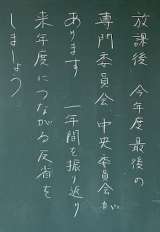 放課後 今年度最後の
専門委員会 中央委員会が
あります 一年間を振り返り
来年度につながる反省を
しましょう